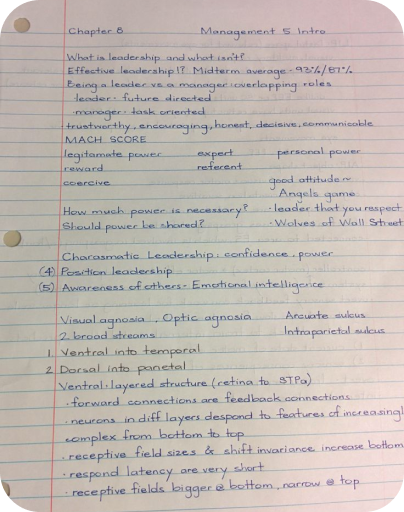 Chapter 8 Management 5 Intro
What is leadership and what isn't?
Effective leadership!? Midterm average - 93%/87%
Being a leader vs a manager: overlapping roles
leader - future directed
manager - task oriented
trustworthy, encouraging, honest, decisive, communicable
MACH SCORE
legitamate power expert personal power
reward referent
coercive good attitude ~
Angels game
How much power is necessary? - leader that you respect
Should power be shared? - Wolves of Wall Street
Charasmatic Leadership: confidence, power
(4) Position leadership
(5) Awareness of others - Emotional intelligence
Visual agnosia, Optic agnosia Arcuate sulcus
2 broad streams Intraparietal sulcus
1. Ventral into temporal
2. Dorsal into parietal
Ventral - layered structure (retina to STPa)
- forward connections are feedback connections
- neurons in diff layers despond to features of increasingl
complex from bottom to top
- receptive field sizes & shift invariance increase bottom
- respond latency are very short
- receptive fields bigger @ bottom, narrow @ top